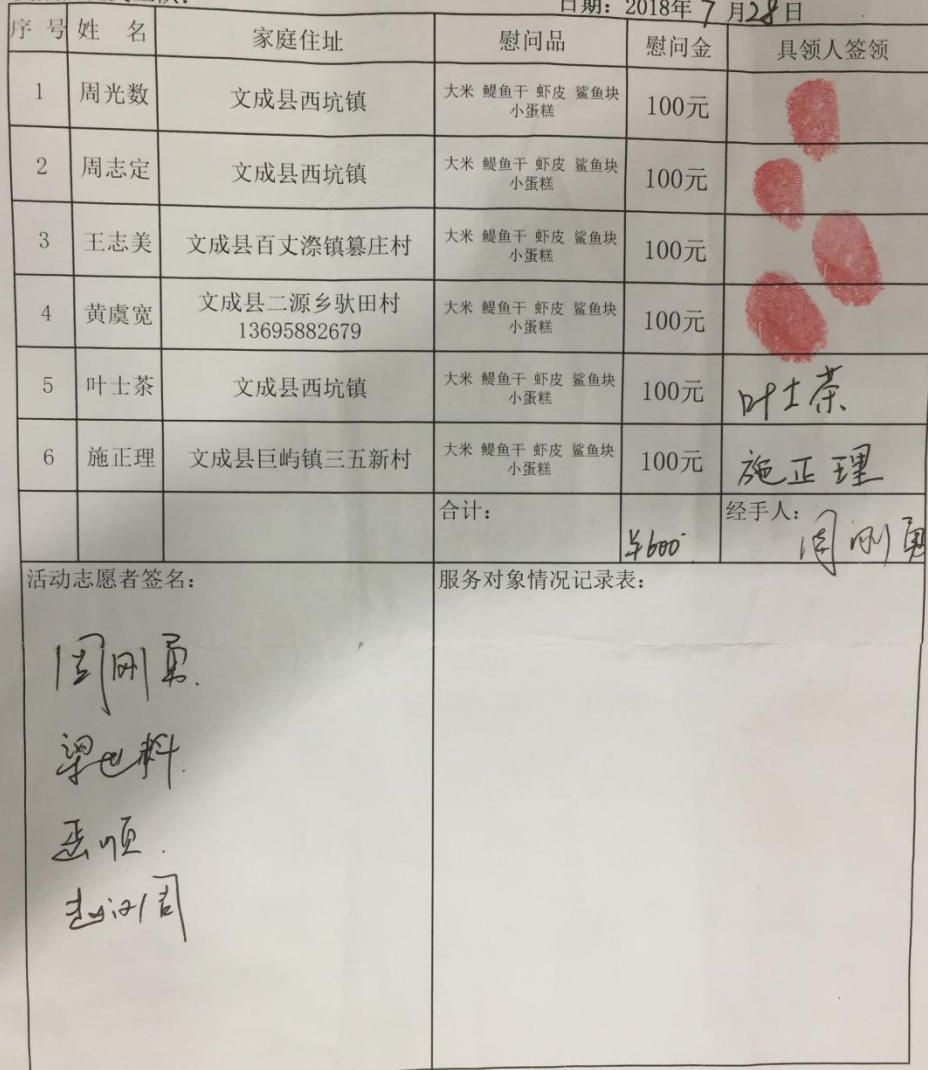 日期：2018年7月28日
序 号 姓 名 家庭住址 慰问品 慰问金 具领人签领
1 周光数 文成县西坑镇 大米 鳀鱼干 虾皮 鲨鱼块 小蛋糕 100元
2 周志定 文成县西坑镇 大米 鳀鱼干 虾皮 鲨鱼块 小蛋糕 100元
3 王志美 文成县百丈漈镇篡庄村 大米 鳀鱼干 虾皮 鲨鱼块 小蛋糕 100元
4 黄虞宽 文成县二源乡驮田村 13695882679 大米 鳀鱼干 虾皮 鲨鱼块 小蛋糕 100元
5 叶士茶 文成县西坑镇 大米 鳀鱼干 虾皮 鲨鱼块 小蛋糕 100元 叶士茶
6 施正理 文成县巨屿镇三五新村 大米 鳀鱼干 虾皮 鲨鱼块 小蛋糕 100元 施正理
合计： ¥600 经手人： 周刚勇
活动志愿者签名： 服务对象情况记录表：
周刚勇